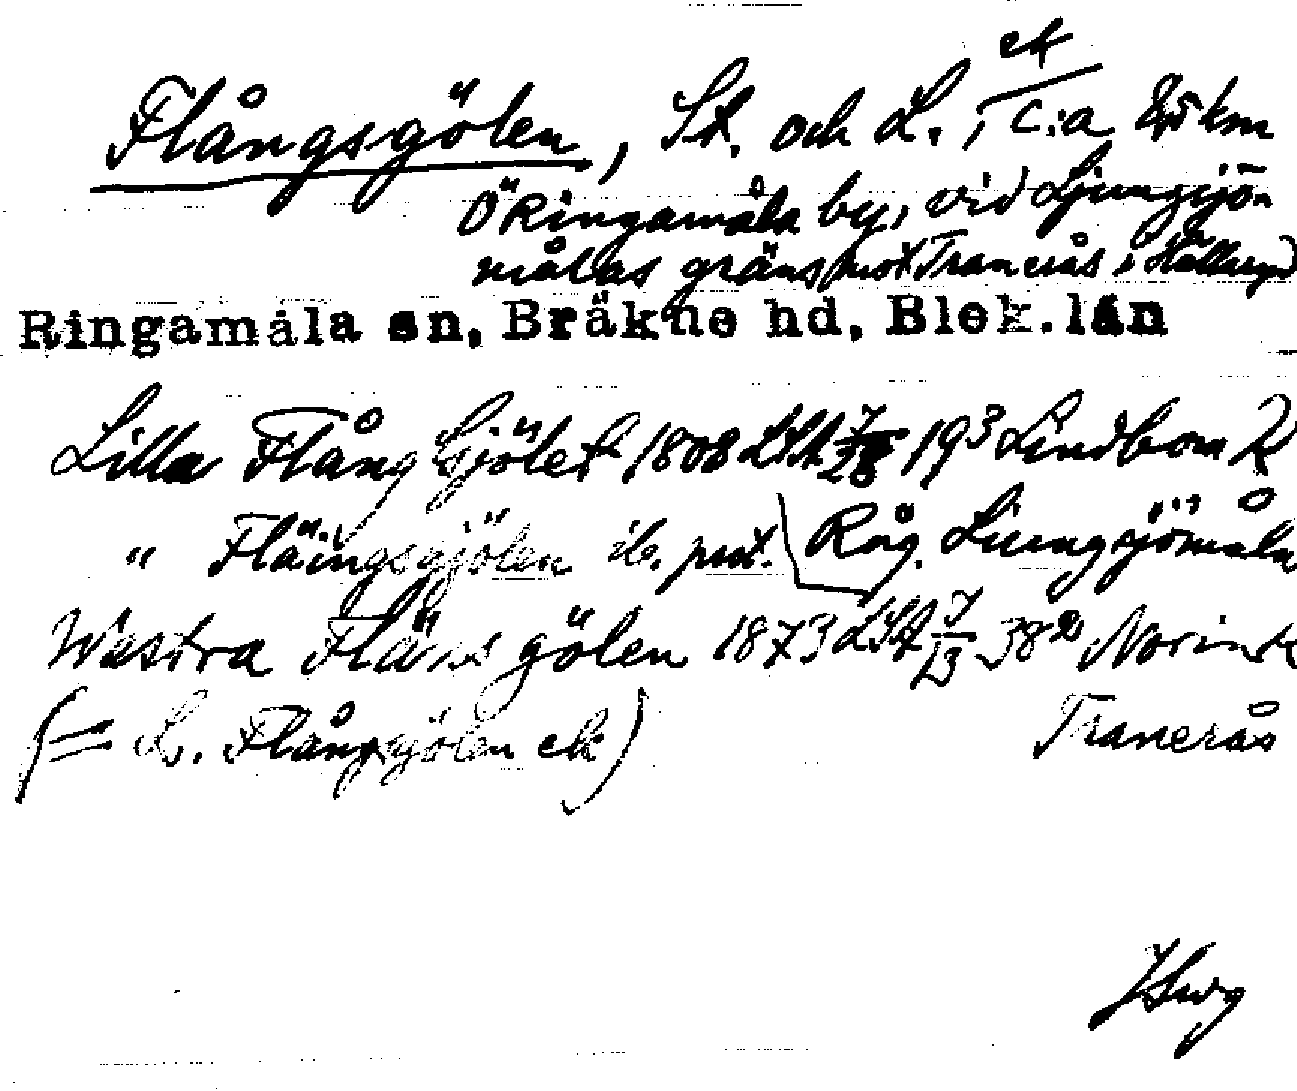 ek
Flångsgölen, St. och L., c:a 2,5 km
Ö Ringamåla by, vid Ljungsjö-
målas gräns mot Tranerås i Hällaryd
Ringamåla sn, Bräkne hd, Blek. län
Lilla Flång Sjölet 1808 LSA 193 Lindbom R
" Fläingsgjölen ib. prot. Råg. Liungsjömåla
Westra Fläns gölen 1873 LSA 7/13 38 Norinder
(= L. Flångsgölen ek) Tranerås